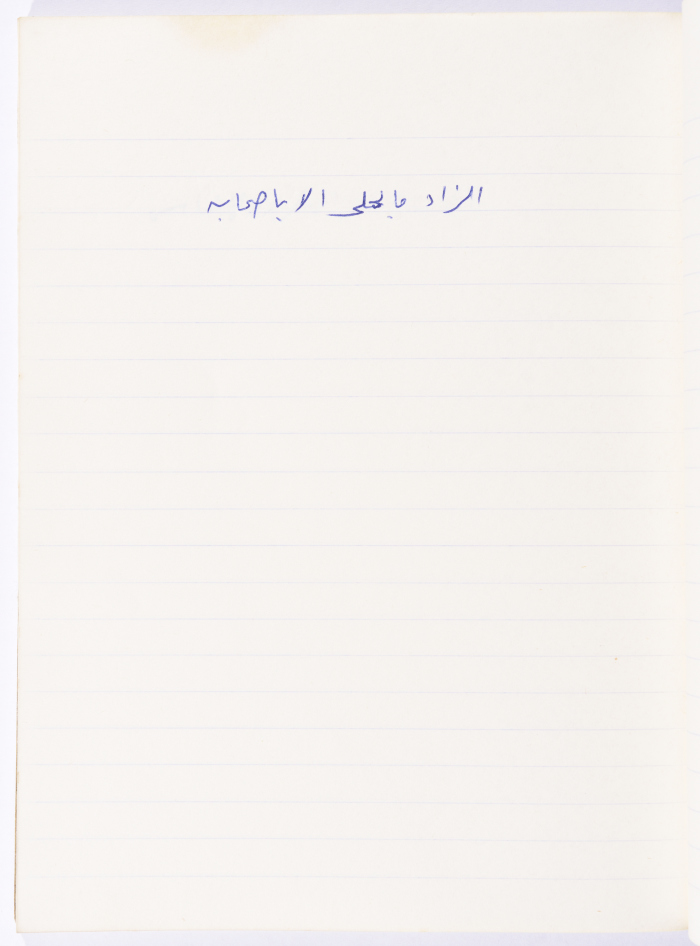 الزاد ما يحلى الا باصحابه